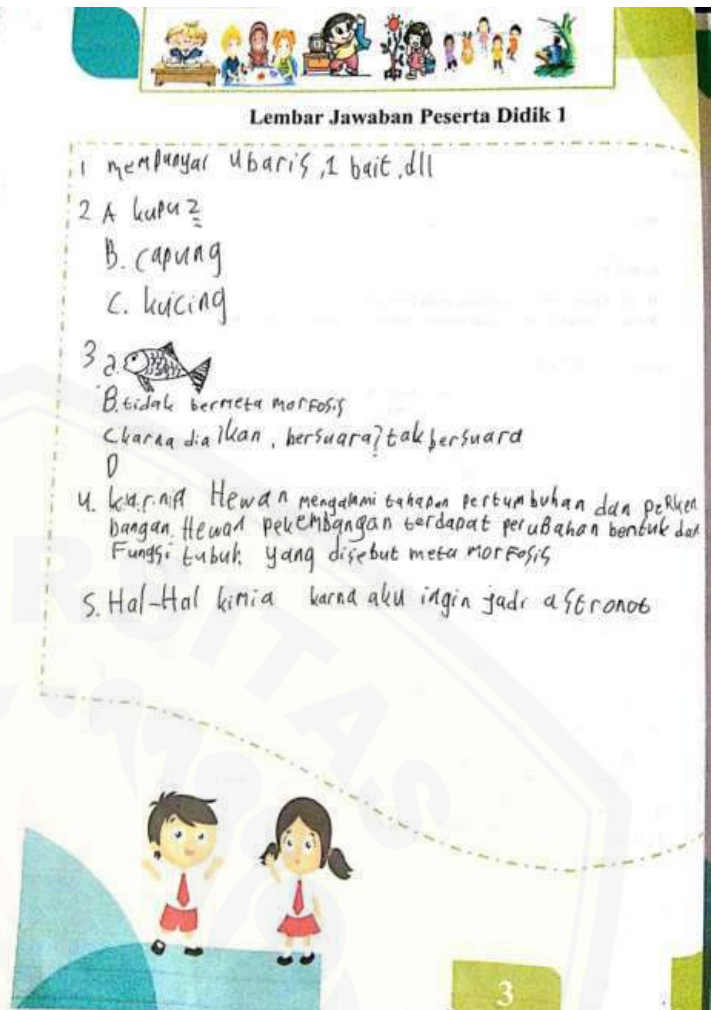 Lembar Jawaban Peserta Didik 1
1 mempunyai 4 baris, 1 bait, dll
2 A kupu2
B. capung
C. kucing
3 a.
B. tidak bermeta morfosis
C karna dia ikan, bersuara? tak bersuara
D
4. karna Hewan mengalami tahapan pertumbuhan dan perken
bangan. Hewan pekembangan terdapat perubahan bentuk dan
Fungsi tubuh yang disebut meta morfosis
5. Hal-Hal kimia karna aku ingin jadi astronot
RSITAS
3